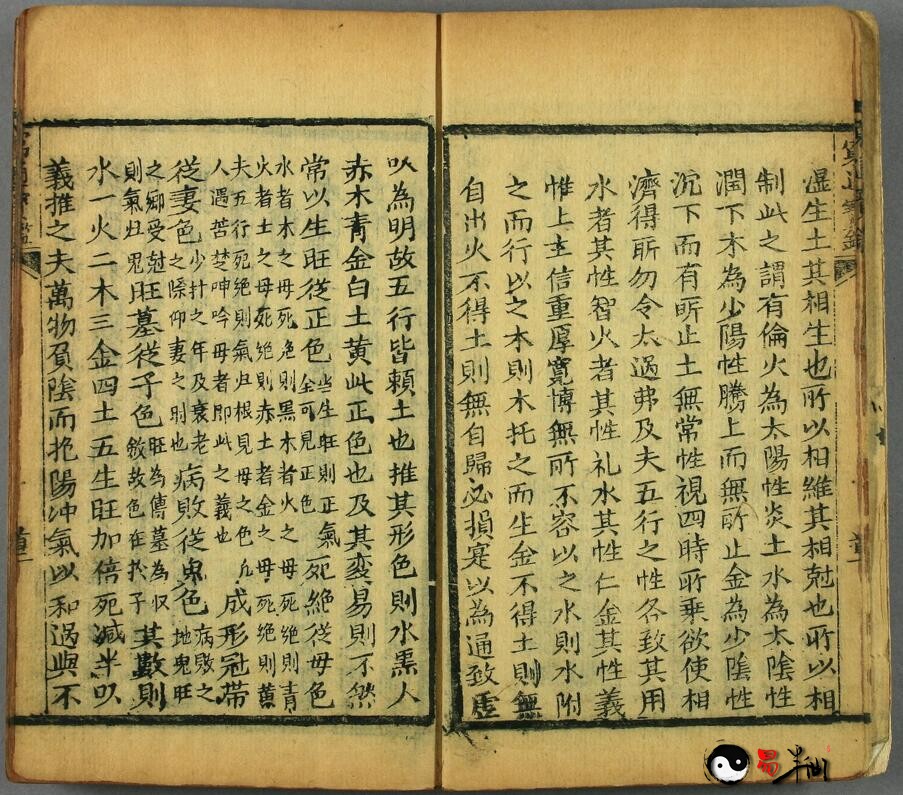 湿生土其相生也所以相維其相尅也所以相
制此之謂有倫火為太陽性炎土水為太陰性
潤下木為少陽性騰上而無所止金為少陰性
沉下而有所止土無常性視四時所乘欲使相
濟得所勿令太過弗及夫五行之性各致其用
水者其性智火者其性礼水其性仁金其性義
惟上主信重厚寛博無所不容以之水則水附
之而行以之本則木托之而生金不得土則無
自出火不得土則無自歸必損寔以為通致虚
以為明故五行皆頼土也推其形色則水黒人
赤木青金白土黄此正色也及其変易則不然
常以生旺從正色當生旺則正氣全可見正色死絶從母色
水者木之母死絶則黒木者火之母死絶則青
火者土之母死絶則赤土者金之母死絶則黄
夫五行死絶則氣归根見母之色凡
人遇苦楚呻吟母者即此之義也成形冠帶
從妻色少壮之年及衰老之際仰妻之則也病敗從鬼色病敗之地鬼旺
之鄉受尅則氣归鬼旺墓從子色旺為傳墓為収敛故色在於子其數則
水一火二木三金四土五生旺加倍死減半以
義推之夫萬物負陰而抱陽冲氣以和過與不